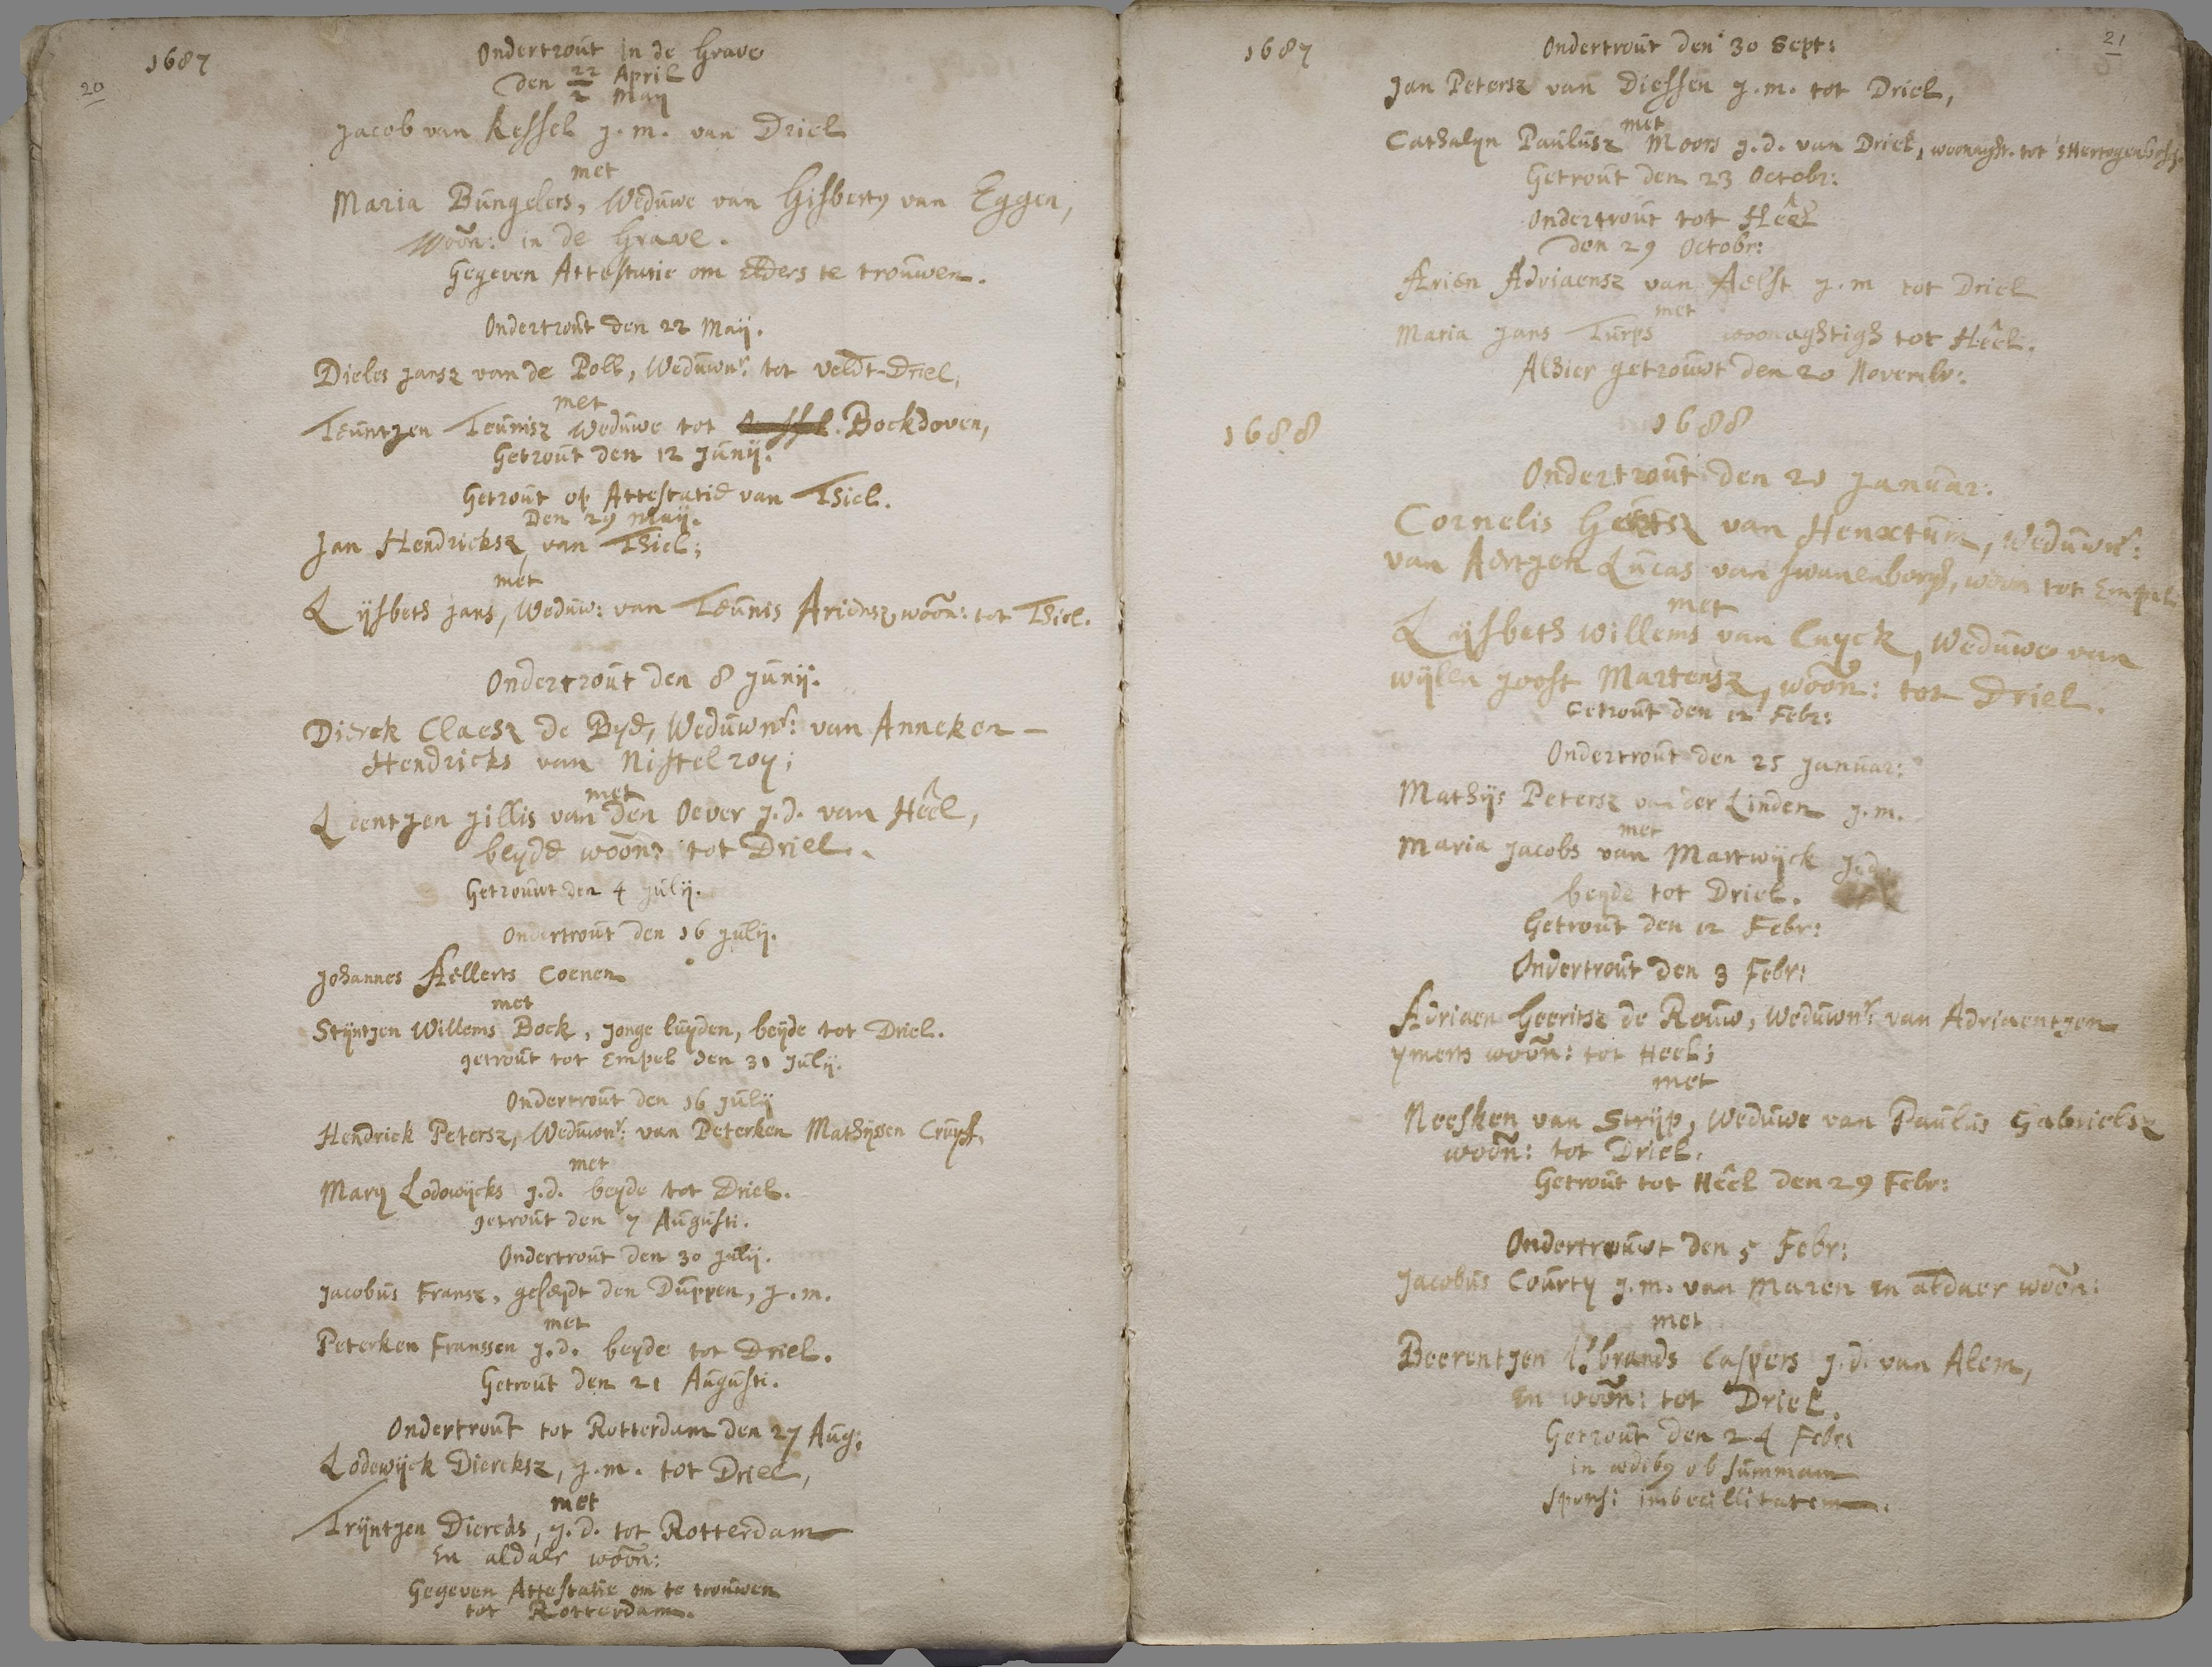 20
1687
Ondertrout in de Grave
Den 22 April
2 Maij
Jacob van Kessel j.m. van Driel
met
Maria Bungelers, Weduwe van Gisberty van Eggen,
Woon: in de Grave.
Gegeven Attestatie om Elders te trouwen.
Ondertrout den 22 Maij.
Dieles Jansz van de Poll, Weduwnr. tot Veldt-Driel,
met
Teuntjen Teunisz Weduwe tot Bockhoven,
Getrout den 12 Junij.
Getrout op Attestatie van Thiel.
Den 29 Maij.
Jan Hendricksz, van Thiel;
met
Lijsbeth Jans, Weduw: van Teunis Ariensz, woon: tot Thiel.
Ondertrout den 8 Junij.
Dierck Claesz de Bye, Weduwnr: van Anneken
Hendricks van Nistelroy;
met
Leentjen Jillis van den Oever j.d. van Hêel,
beyde woon: tot Driel.
Getrouwt den 4 Julij.
Ondertrout den 16 Julij.
Johannes Aellerts Coenen
met
Stijntjen Willems Bock, Jonge luyden, beyde tot Driel.
getrout tot Empel den 31 Julij.
Ondertrout den 16 Julij
Hendrick Petersz, Weduwnr: van Peterken Mathijssen
met
Mary Lodowijcks j.d. beyde tot Driel.
getrout den 7 Augusti.
Ondertrout den 30 Julij.
Jacobus Fransz, geseydt den Duppen, j.m.
met
Peterken Franssen j.d. beyde tot Driel.
Getrout den 21 Augusti.
Ondertrout tot Rotterdam den 27 Aug:
Lodewijck Diercksz, j.m. tot Driel,
met
Trijntjen Diercks, j.d. tot Rotterdam
En aldaer woon:
Gegeven Attestatie om te trouwen
tot Rotterdam.
21
1687
Ondertrout den 30 Sept:
Jan Petersz van Diessen j.m. tot Driel,
met
Cathalyn Paulusz Moors j.d. van Driel, woonagh. tot 's Hertogenbosch.
Getrout den 23 Octobr:
Ondertrout tot Hêel
den 29 Octobr:
Arien Adriaensz van Aelst j.m tot Driel
met
Maria Jans Turps woonaghtigh tot Hêel.
Alhier getrouwt den 20 Novembr:
1688
1688
Ondertrout den 21 Januar:
Cornelis Geritsz van Henxtum, Weduwnr:
van Aertjen Lucas van Swanenborgh, woon tot Empel
met
Lijsbeth Willems van Cuyck, Weduwe van
wijlen Joost Martensz, woon: tot Driel.
Getrout den 12 Febr:
Ondertrout den 25 Januar:
Mathijs Petersz van der Linden j.m.
met
Maria Jacobs van Martwijck j.d.
beyde tot Driel.
Getrout den 12 Febr:
Ondertrout den 3 Febr:
Adriaen Geeritsz de Rouw, Weduwnr: van Adriaentjen
ymerts woon: tot Heel;
met
Neesken van Strijp, Weduwe van Paulus Gabrielsz
woon: tot Driel.
Getrout tot Hêel den 29 Febr:
Ondertrouwt den 5 Febr:
Jacobus Courty j.m. van Maren en aldaer woon:
met
Beerentjen IJsbrands Caspers j.d. van Alem,
en woon: tot Driel.
Getrout den 24 Febr:
in ob summam
sponsi imbecillitatem.